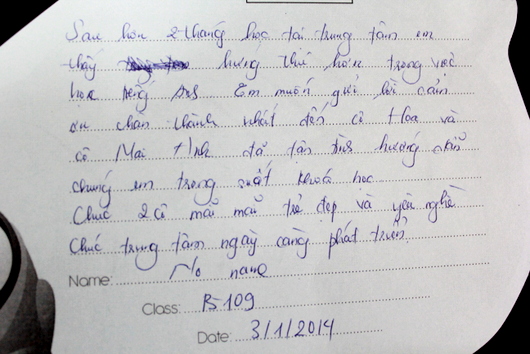 Sau hơn 2 tháng học tại trung tâm em
thấy hứng thú hơn trong việc
học tiếng Anh. Em muốn gửi lời cảm
ơn chân thành nhất đến cô Hoa và
cô Mai Anh đã tận tình hướng dẫn
chúng em trong suốt khoá học
Chúc 2 cô mãi mãi trẻ đẹp và yêu nghề
Chúc trung tâm ngày càng phát triển.
Name: No name
Class: B-109
Date: 3/1/2014